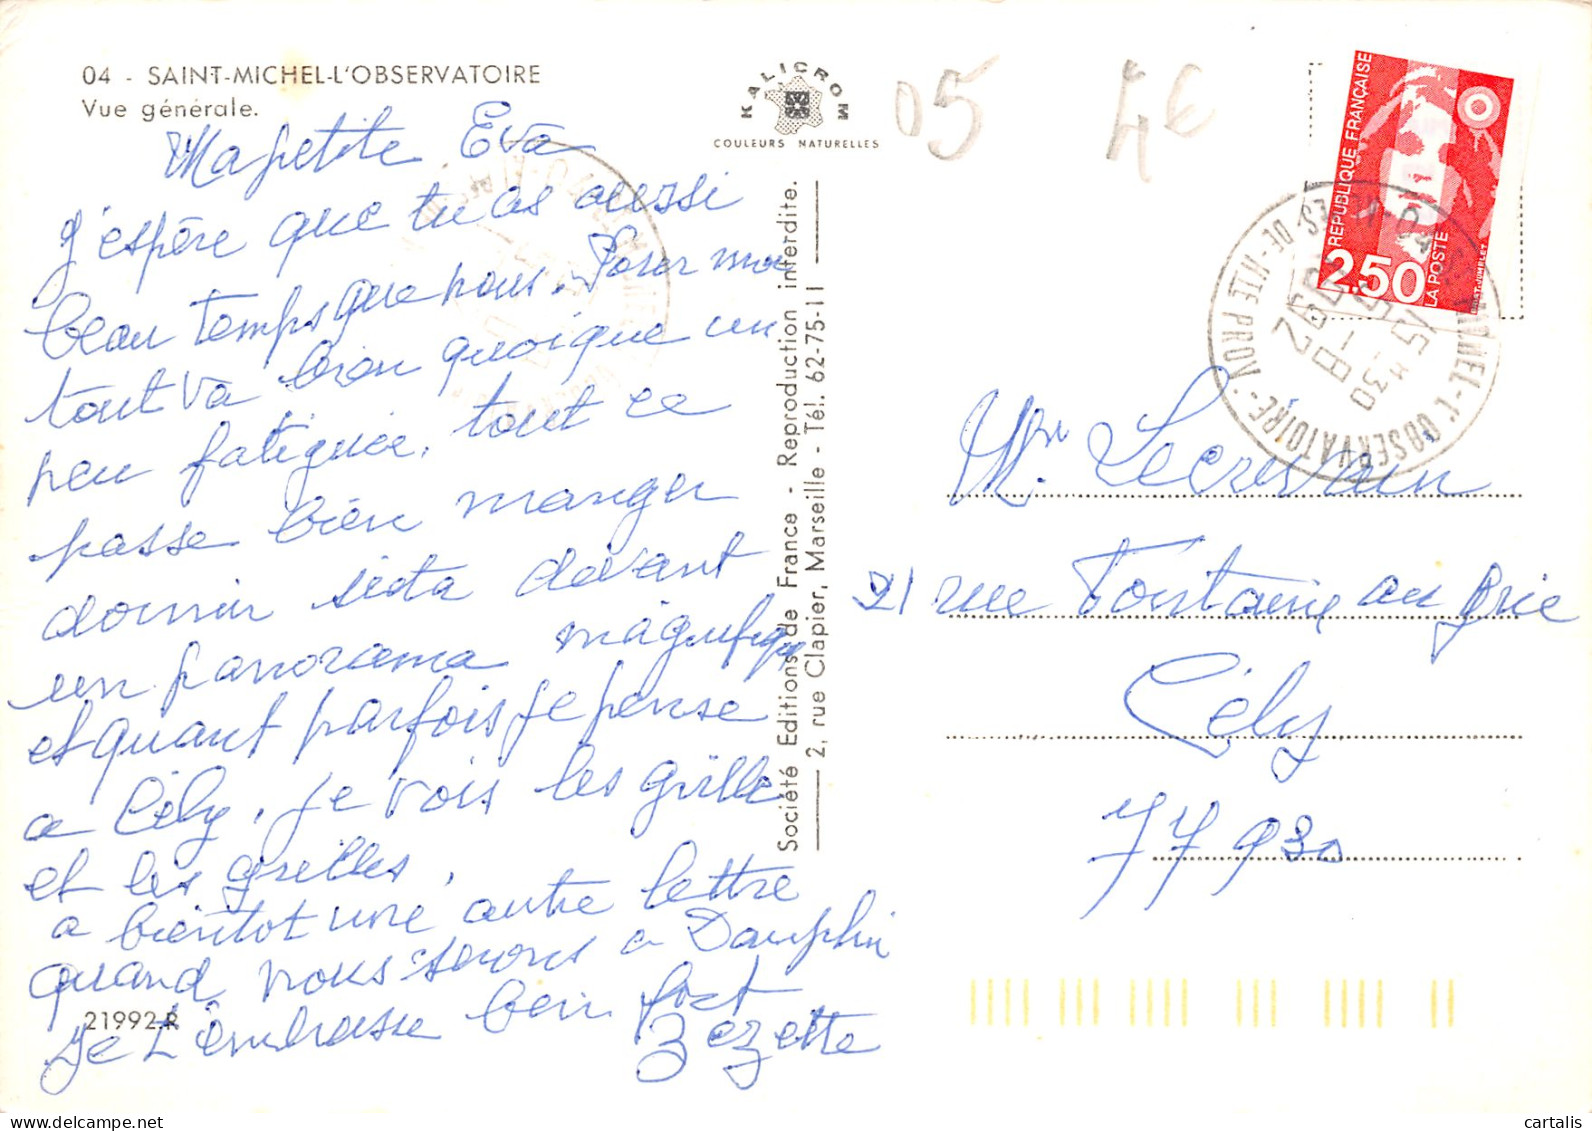 04 - SAINT-MICHEL-L'OBSERVATOIRE
Vue générale.
KALICROM
COULEURS NATURELLES
05
4€
REPUBLIQUE FRANÇAISE
2,50
LA POSTE
15 H 30
-8
1992
L'OBSERVATOIRE
ALPES-DE-HTE PROV.
Ma petite Eva
J'espère que tu as aussi
beau temps que nous. Pour moi
tout va bien quoique un
peu fatiguée, tout ce
passe bien manger
dormir siesta devant
un panorama magnifique
et quant parfois je pense
a Cély, je vois les grille
et les grilles,
a bientot une autre lettre
quand nous serons a Dauphin
Je t'embrasse bien fort
Zezette
21992-R
Société Editions de France - Reproduction interdite.
2, rue Clapier, Marseille - Tél. 62-75-11
Mr Lecrivain
21 rue Fontaine au Grie
Cély
77930
delcampe.net
cartalis